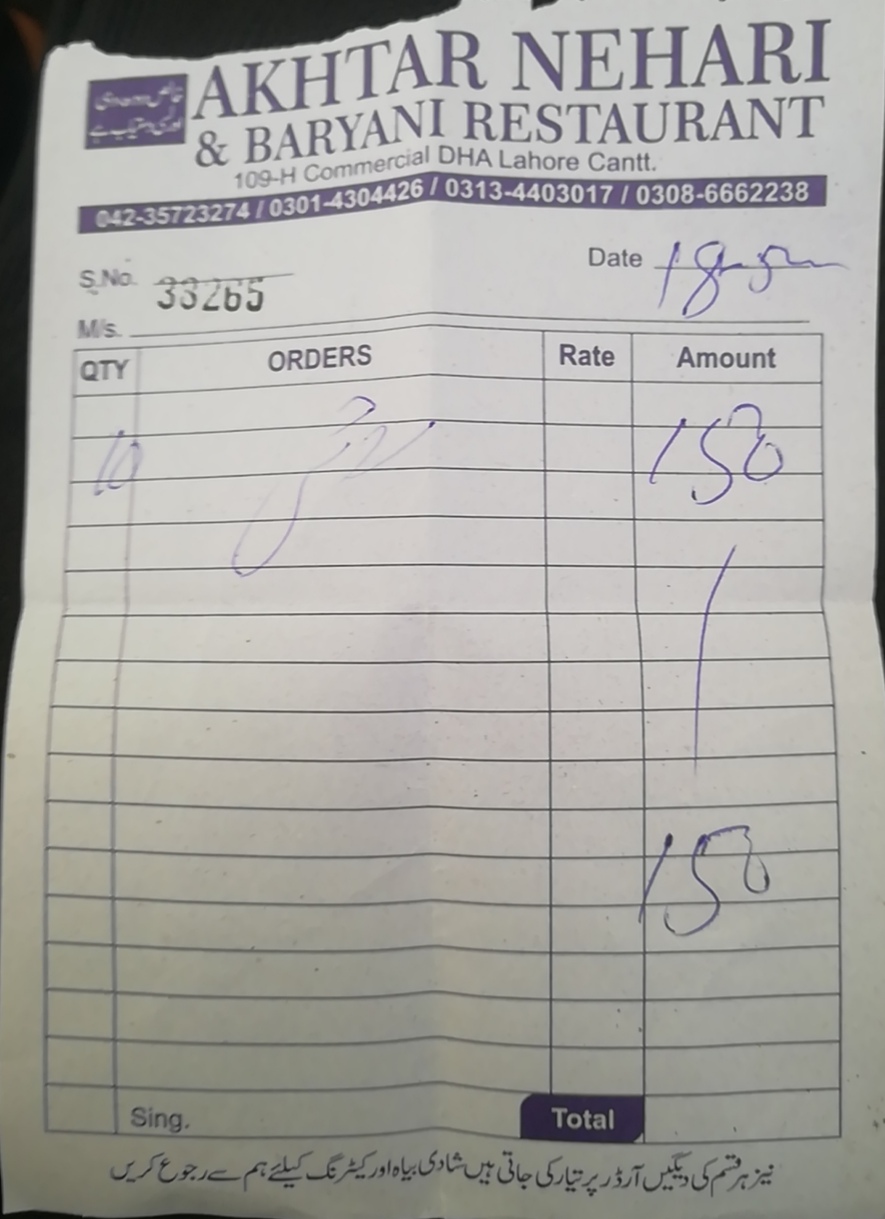 AKHTAR NEHARI
& BARYANI RESTAURANT
109-H Commercial DHA Lahore Cantt.
042-35723274 / 0301-4304426 / 0313-4403017 / 0308-6662238
S.No. 33265
Date
M/s.
QTY ORDERS Rate Amount
10 150
150
Sing. Total
نیز ہر قسم کی دیگیں آرڈر پر تیار کی جاتی ہیں شادی بیاہ اور کیٹرنگ کیلئے ہم سے رجوع کریں